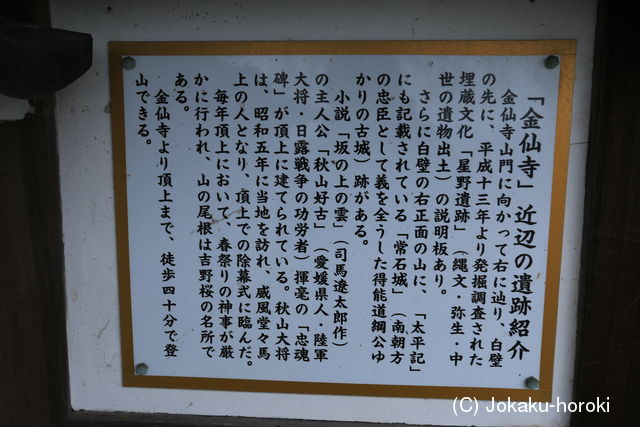 「金仙寺」近辺の遺跡紹介
金仙寺山門に向かって右に辿り、白壁
の先に、平成十三年より発掘調査された
埋蔵文化「星野遺跡」（縄文・弥生・中
世の遺物出土）の説明板あり。
さらに白壁の右正面の山に、「太平記」
にも記載されている「常石城」（南朝方
の忠臣として義を全うした得能道綱公ゆ
かりの古城）跡がある。
小説「坂の上の雲」（司馬遼太郎作）
の主人公「秋山好古」（愛媛県人・陸軍
大将・日露戦争の功労者）揮毫の「忠魂
碑」が頂上に建てられている。秋山大将
は、昭和五年に当地を訪れ、威風堂々馬
上の人となり、頂上での除幕式に臨んだ。
毎年頂上において、春祭りの神事が厳
かに行われ、山の尾根は吉野桜の名所で
ある。
金仙寺より頂上まで、徒歩四十分で登
山できる。
(C) Jokaku-horoki